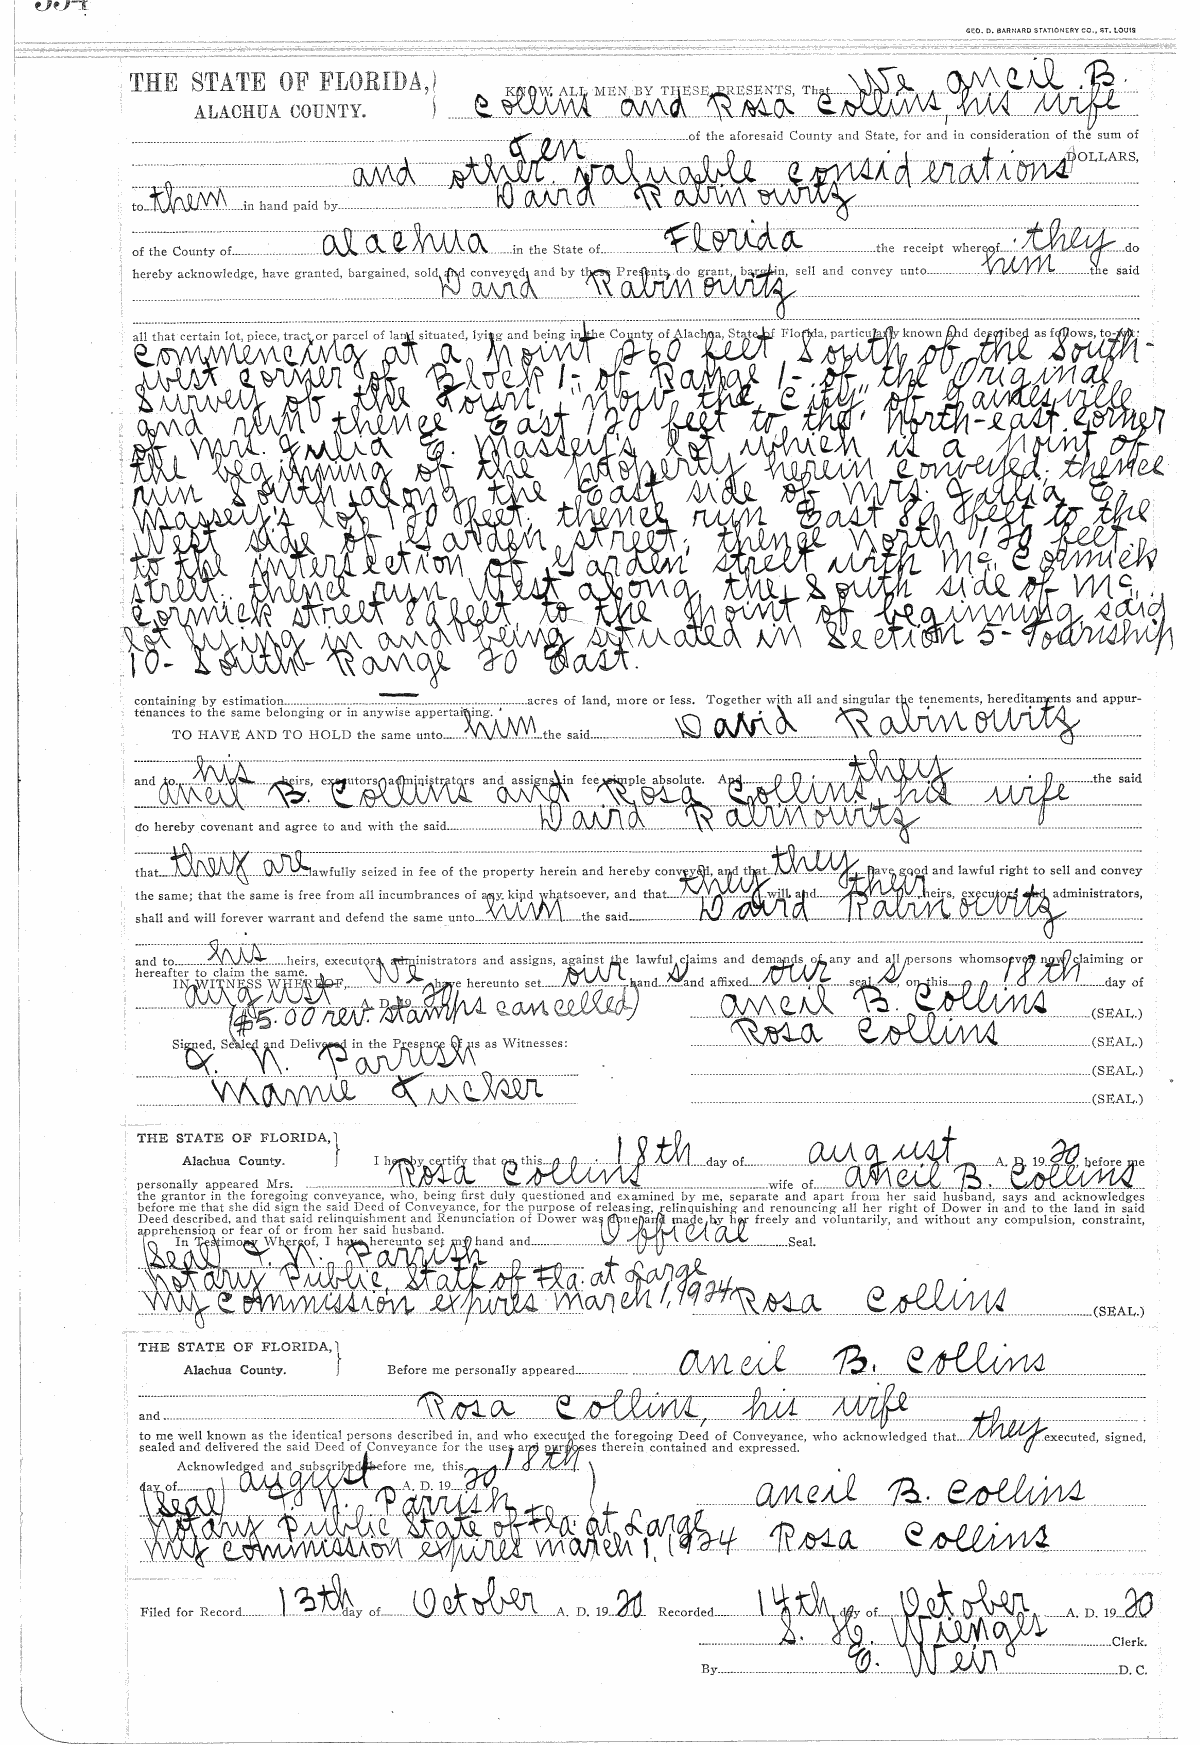 GEO. D. BARNARD STATIONERY CO., ST. LOUIS
THE STATE OF FLORIDA,
ALACHUA COUNTY.
KNOW ALL MEN BY THESE PRESENTS, That We Ancil B.
Collins and Rosa Collins, his wife
of the aforesaid County and State, for and in consideration of the sum of
Ten
and other valuable considerations DOLLARS,
to them in hand paid by David Rabinowitz
of the County of Alachua in the State of Florida the receipt whereof they do
hereby acknowledge, have granted, bargained, sold and conveyed and by these Presents do grant, bargain, sell and convey unto him the said
David Rabinowitz
all that certain lot, piece, tract or parcel of land situated, lying and being in the County of Alachua, State of Florida, particularly known and described as follows, to-wit:
Commencing at a point 260 feet South of the South-
west corner of Block 1- of Range 1- of the Original
Survey of the Town, now the City, of Gainesville
and run thence East 120 feet to the North-east corner
of Mrs. Julia E. Massey's lot which is a point of
the beginning of the property herein conveyed; thence
run South along the East side of Mrs. Julia E.
Massey's lot 120 feet; thence run East 82 feet to the
West side of Garden street; thence North 120 feet
to the intersection of Garden street with Mc. Cormick
street; thence run West along the South side of Mc.
Cormick street 82 feet to the point of beginning, said
lot lying in and being situated in Section 5- Township
10- South- Range 20 East.
containing by estimation — acres of land, more or less. Together with all and singular the tenements, hereditaments and appur-
tenances to the same belonging or in anywise appertaining.
TO HAVE AND TO HOLD the same unto him the said David Rabinowitz
and to his heirs, executors, administrators and assigns in fee simple absolute. And they the said
Ancil B. Collins and Rosa Collins, his wife
do hereby covenant and agree to and with the said David Rabinowitz
that they are lawfully seized in fee of the property herein and hereby conveyed, and that they have good and lawful right to sell and convey
the same; that the same is free from all incumbrances of any kind whatsoever, and that they will and their heirs, executors and administrators,
shall and will forever warrant and defend the same unto him the said David Rabinowitz
and to his heirs, executors, administrators and assigns, against the lawful claims and demands of any and all persons whomsoever now claiming or
hereafter to claim the same.
IN WITNESS WHEREOF, We have hereunto set our hands and affixed our seals on this 18th day of
August A. D. 1920
($5.00 rev. stamps cancelled) Ancil B. Collins (SEAL.)
Rosa Collins (SEAL.)
Signed, Sealed and Delivered in the Presence of us as Witnesses:
N. Parrish (SEAL.)
Mamie Tucker (SEAL.)
THE STATE OF FLORIDA,
Alachua County. I hereby certify that on this 18th day of August A. D. 1920 before me
personally appeared Mrs. Rosa Collins wife of Ancil B. Collins
the grantor in the foregoing conveyance, who, being first duly questioned and examined by me, separate and apart from her said husband, says and acknowledges
before me that she did sign the said Deed of Conveyance, for the purpose of releasing, relinquishing and renouncing all her right of Dower in and to the land in said
Deed described, and that said relinquishment and Renunciation of Dower was done and made by her freely and voluntarily, and without any compulsion, constraint,
apprehension or fear of or from her said husband.
In Testimony Whereof, I have hereunto set my hand and Official Seal.
(Seal) N. Parrish
Notary Public, State of Fla. at Large
My commission expires March 1, 1924 Rosa Collins (SEAL.)
THE STATE OF FLORIDA,
Alachua County. Before me personally appeared Ancil B. Collins
and Rosa Collins, his wife
to me well known as the identical persons described in, and who executed the foregoing Deed of Conveyance, who acknowledged that they executed, signed,
sealed and delivered the said Deed of Conveyance for the uses and purposes therein contained and expressed.
Acknowledged and subscribed before me, this 18th
day of August A. D. 1920
(Seal) N. Parrish Ancil B. Collins
Notary Public State of Fla. at Large
My commission expires March 1, 1924 Rosa Collins
Filed for Record 13th day of October A. D. 1920 Recorded 14th day of October A. D. 1920
S. H. Wienges Clerk.
By E. Weir D. C.